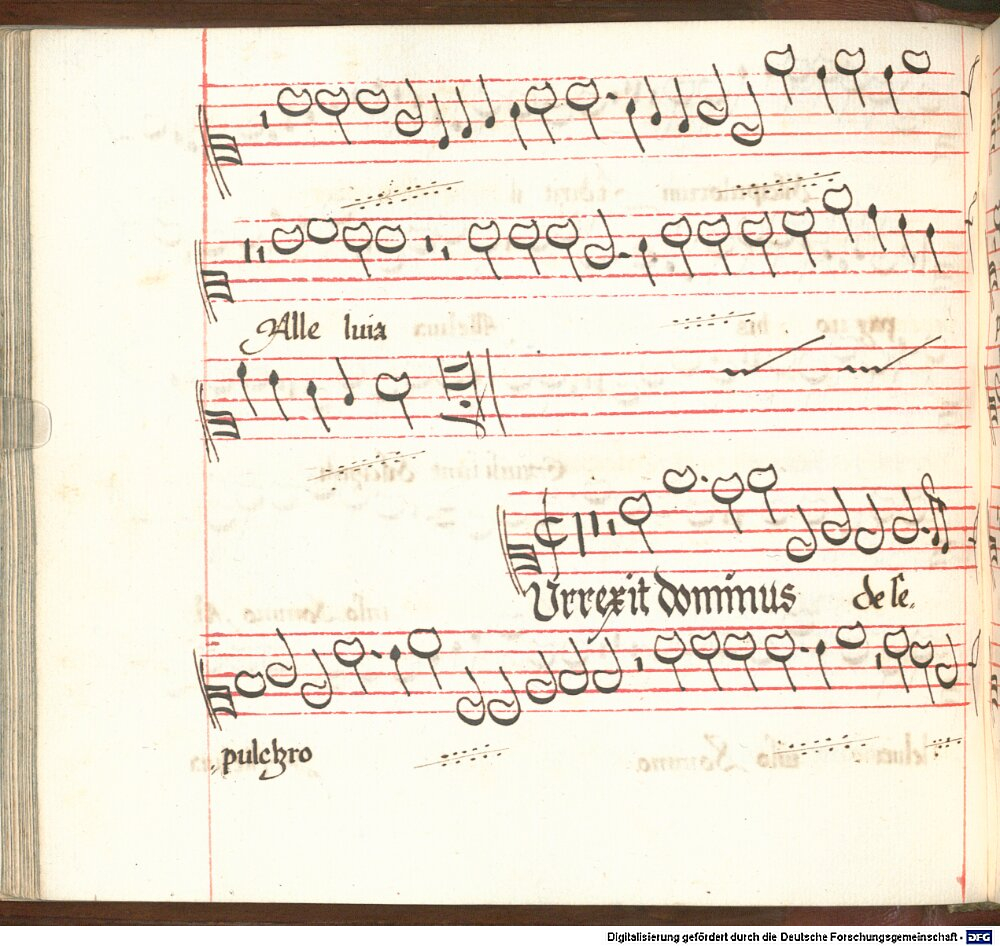 Alle luia
Urrexit dominus de se.
pulchro
Digitalisierung gefördert durch die Deutsche Forschungsgemeinschaft - DFG